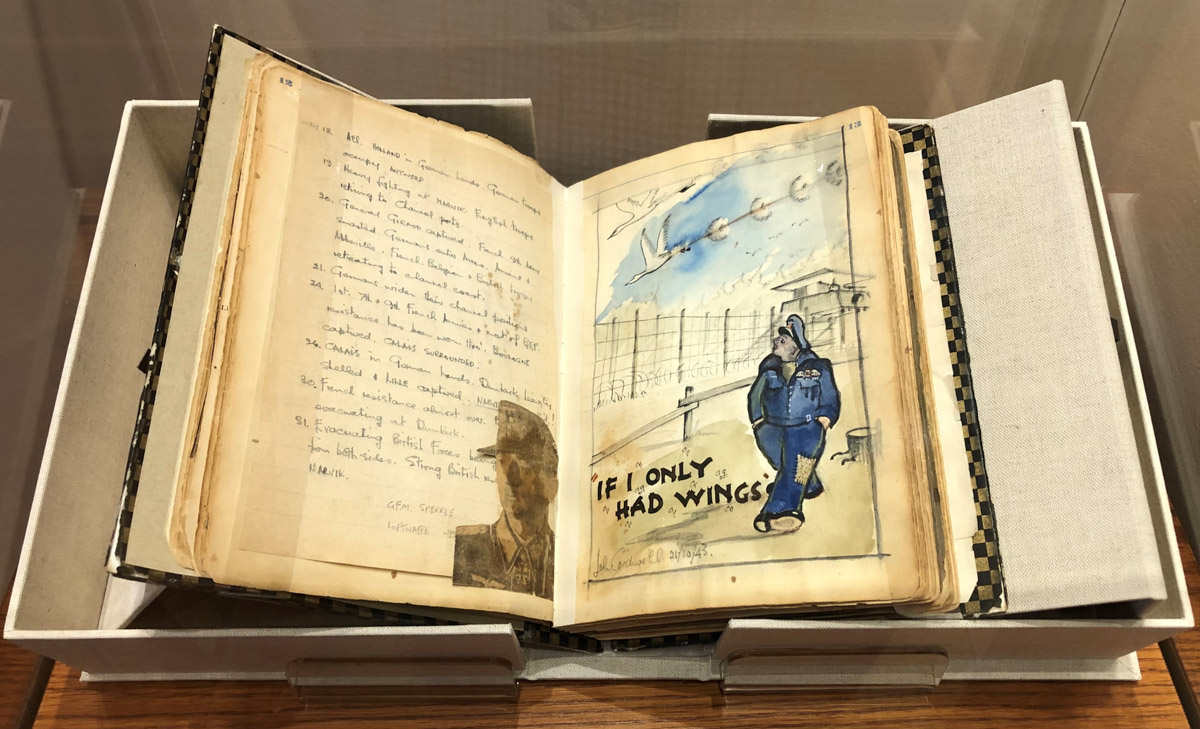 12
18. All HOLLAND in German hands. German troops
occupy ANTWERP.
19. Heavy fighting at NARVIK. English troops
retiring to Channel ports.
20. General GIRAUD captured. French 9th Army
Germans enter Arras, Amiens &
Abbeville. French, Belgian & British troops
retreating to channel coast.
21. Germans widen their channel positions
24. 1st, 7th & 9th French Armies & most of BEF.
resistance has been
captured. CALAIS SURROUNDED.
26. CALAIS in German hands. Dunkirk heavily
shelled & LILLE captured. NARVIK
30. French resistance almost over.
evacuating at Dunkirk.
31. Evacuating British Forces
from both sides. Strong British
NARVIK.
LUFTWAFFE
13
"IF I ONLY
HAD WINGS"
21/10/43.